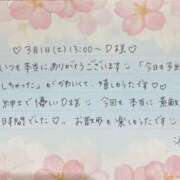 ♡3月1日(土)13:00〜D様♡
いつも本当にありがとうございます♡「今日も予約
しちゃった」がかわいくて、嬉しかったです♡♡
紳士で優しいD様♡今回も本当に素敵な
お時間でした♡。お散歩も楽しかったです♡